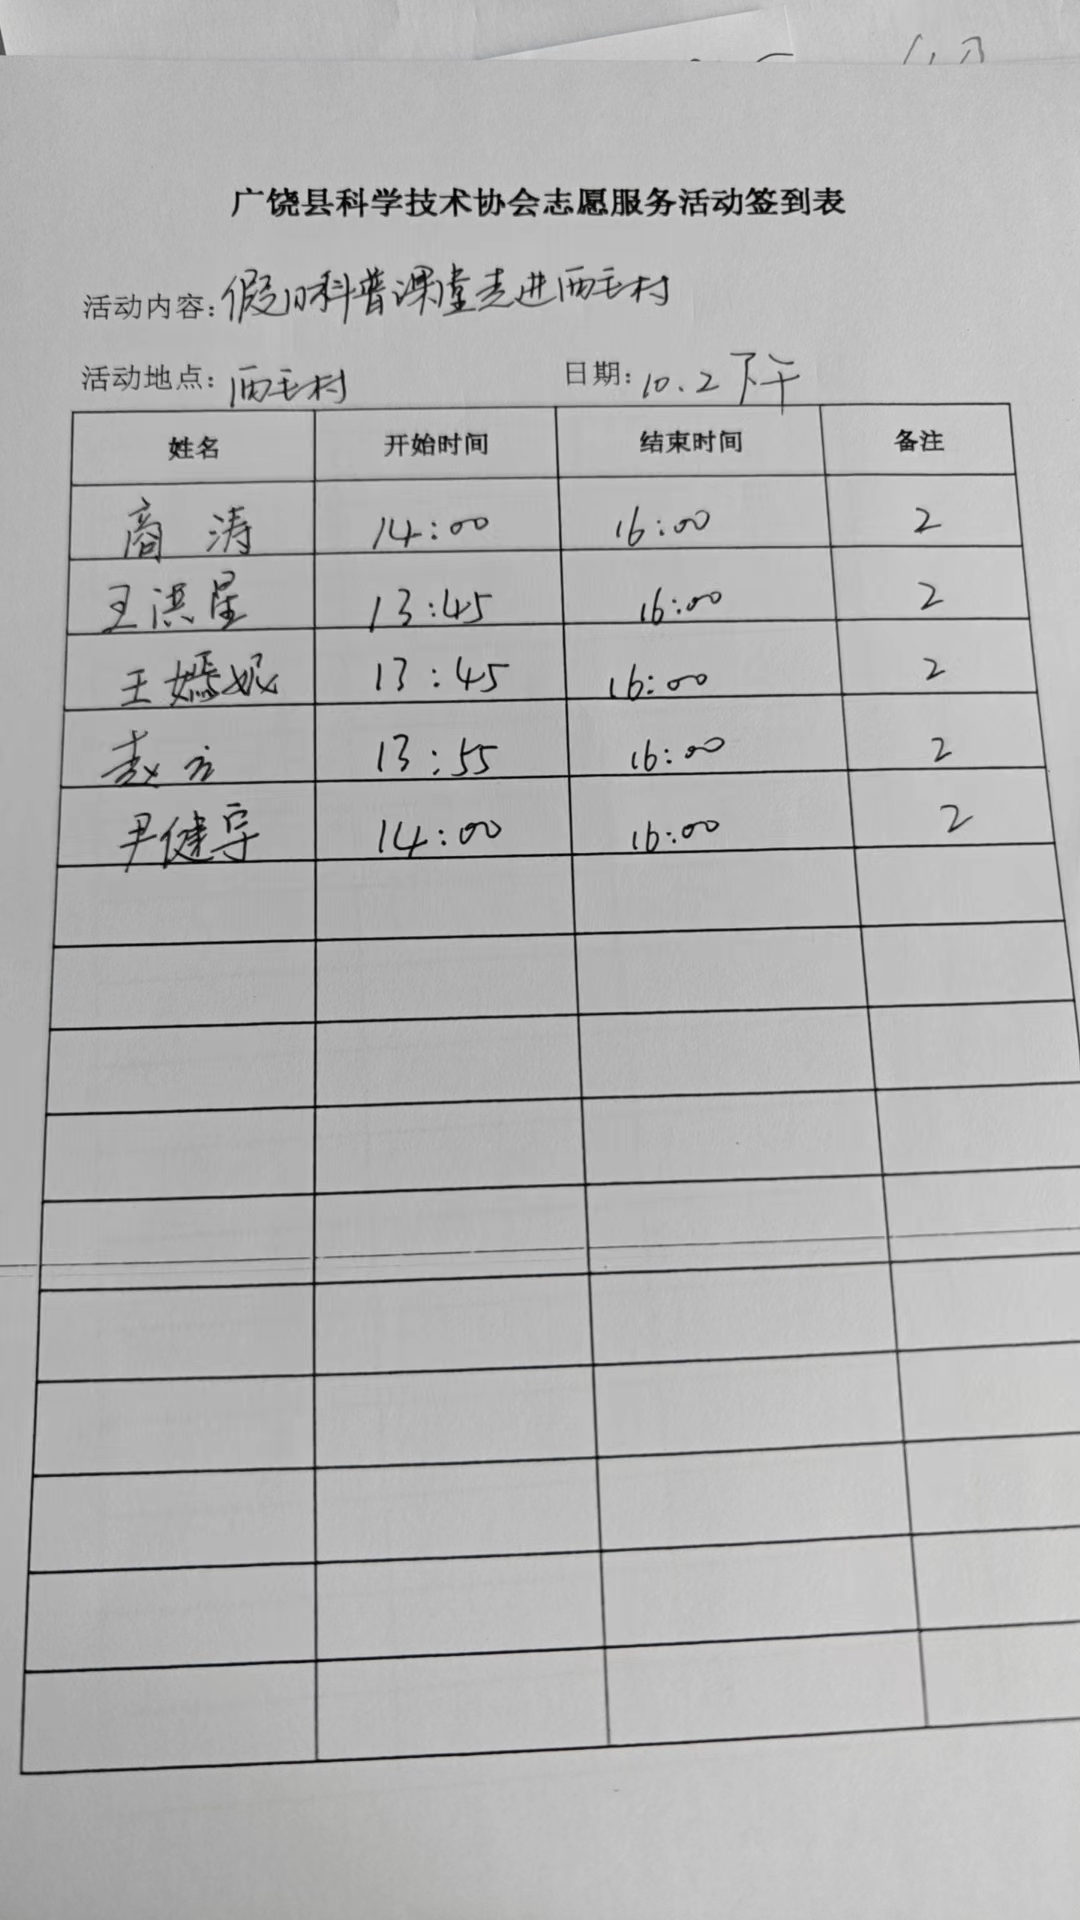 广饶县科学技术协会志愿服务活动签到表
活动内容: 假日科普课堂走进西毛村
活动地点: 西毛村 日期: 10.2 下午
姓名 开始时间 结束时间 备注
商涛 14:00 16:00 2
王洪星 13:45 16:00 2
王嫣妮 13:45 16:00 2
赵方 13:55 16:00 2
尹健 14:00 16:00 2